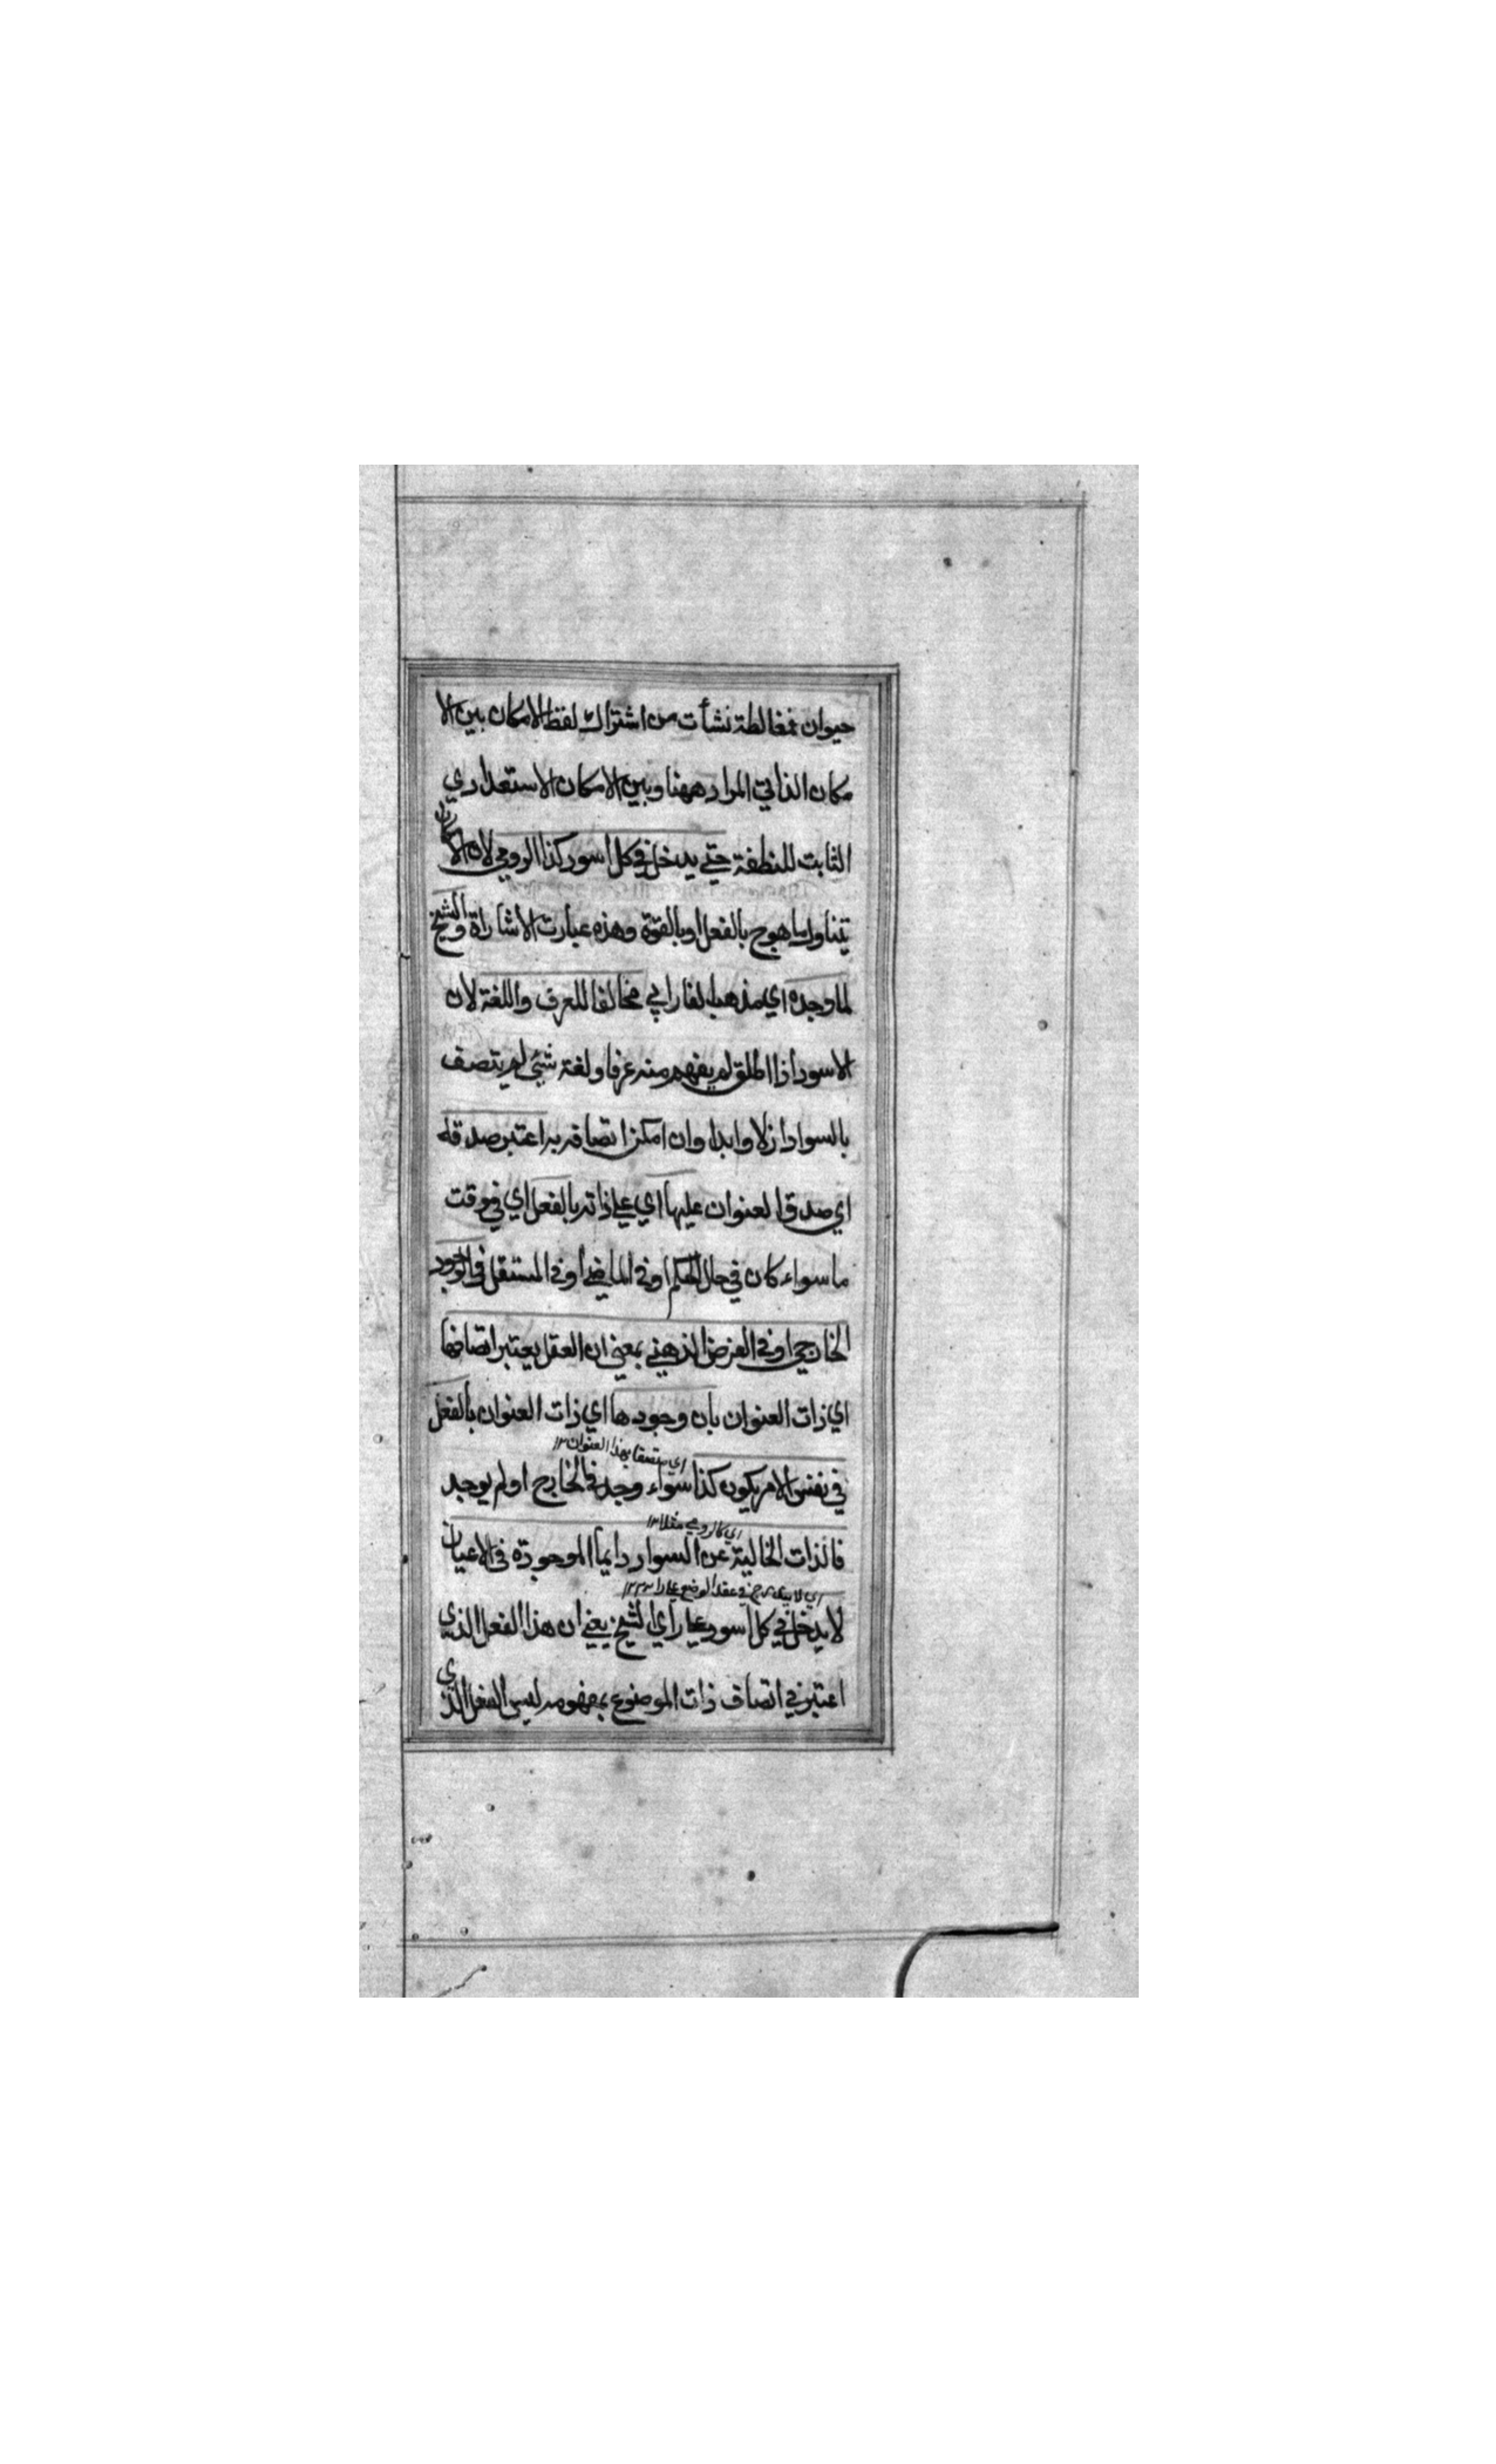 حيوان فمغالطة نشأت من اشتراك لفظ الامكان بين الا
مكان الذاتي المراد ههنا وبين الامكان الاستعدادي
الثابت للنطفة حتي يدخل في كل اسود كذا الرومي لان الامكان
يتناول ما هو ج بالفعل او بالقوة وهذه عبارت الاشاراة والشيخ
لما وجده اي مذهب الفارابي مخالفا للعرف واللغة لان
الاسود اذا اطلق لم يفهم منه عرفا ولغة شئي لم يتصف
بالسواد ازلا وابدا وان امكن اتصافه به اعتبر صدقه
اي صدق العنوان عليها اي علي ذاته بالفعل اي في وقت
ما سواء كان في حال الحكم او في الماضي او في المستقبل في الوجود
الخارجي او في الفرض الذهني بمعني ان العقل يعتبر اتصافها
اي ذات العنوان بان وجودها اي ذات العنوان بالفعل
اي متصفا بهذا العنوان ١٢
في نفس الامر يكون كذا سواء وجد في الخارج او لم يوجد
اي كالرومي مثلا ١٢
فالذات الخالية عن السواد دايما الموجودة في الاعيان
اي لا يندرج في عقد الوضع علي
لا يدخل في كل اسود علي راي الشيخ يعني ان هذا الفعل الذي
اعتبر في اتصاف ذات الموضوع بمفهومه ليس الفعل الذي